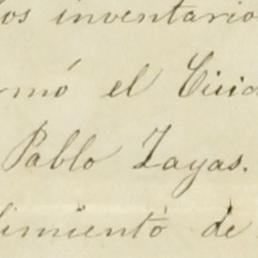 los inventario
rmó el Ciud
Pablo Zayas.
limiento de